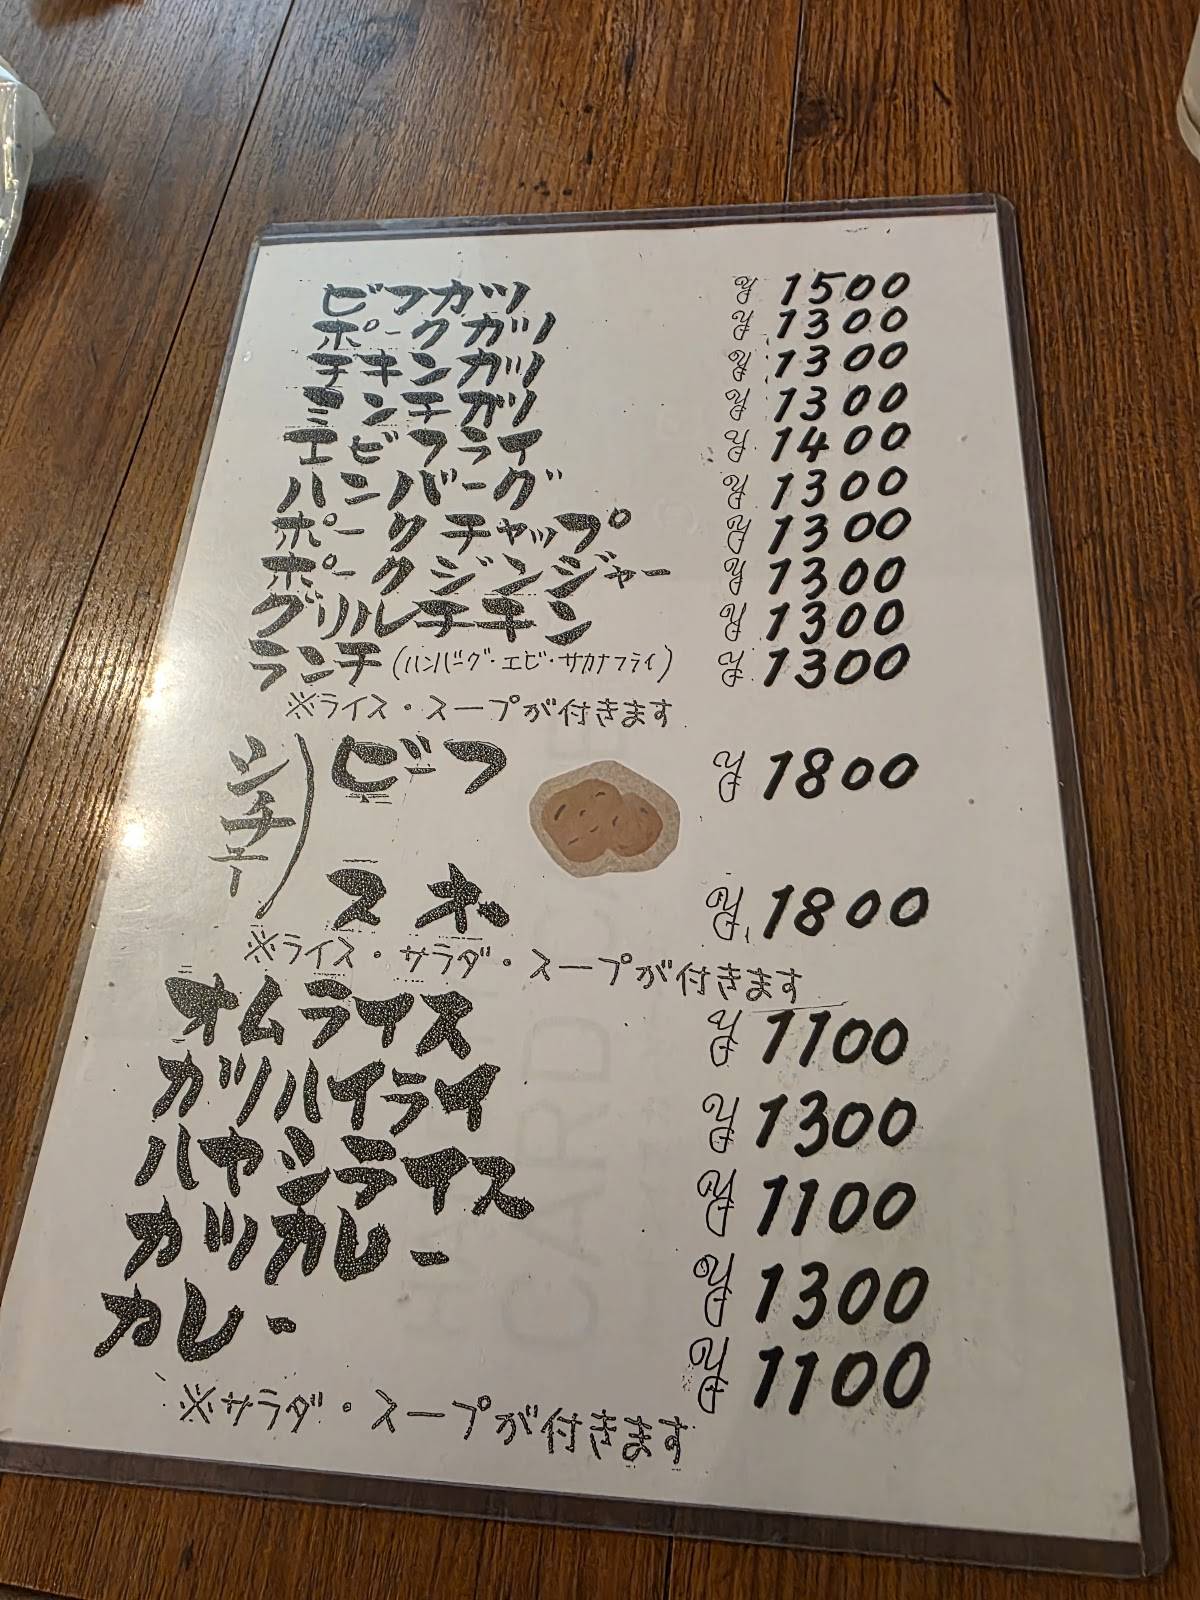 ビフカツ ¥1500
ポークカツ ¥1300
チキンカツ ¥1300
ミンチカツ ¥1300
エビフライ ¥1400
ハンバーグ ¥1300
ポークチャップ ¥1300
ポークジンジャー ¥1300
グリルチキン ¥1300
ランチ(ハンバーグ・エビ・サカナフライ) ¥1300
※ライス・スープが付きます
シチュー
ビーフ ¥1800
スネ ¥1800
※ライス・サラダ・スープが付きます
オムライス ¥1100
カツハイライ ¥1300
ハヤシライス ¥1100
カツカレー ¥1300
カレー ¥1100
※サラダ・スープが付きます